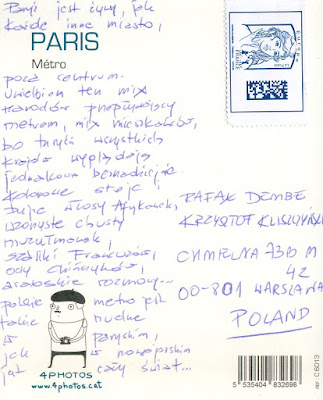 Paryż jest żywy, jak
każde inne miasto,
PARIS
Métro
poza centrum.
Uwielbiam ten mix
narodów przepływający
metrem, mix mieszkańców,
bo turyści wszystkich
krajów wyglądają
jednakowo beznadziejnie
kolorowe stroje,
włosy Afrykanek,
wzorzyste chusty
muzułmanek,
szaliki Francuzów,
oczy Chińczyków,
arabskie rozmowy...
polskie metro jest
takie nudne
w paryskim,
jak w nowojorskim
jest cały świat...
RAFAŁ DEMBE
KRZYSZTOF KLISZCZYŃSKI
CHMIELNA 73B M
42
00-801 WARSZAWA
POLAND
4PHOTOS
www.4photos.cat
5 535404 832698
ref: C6013